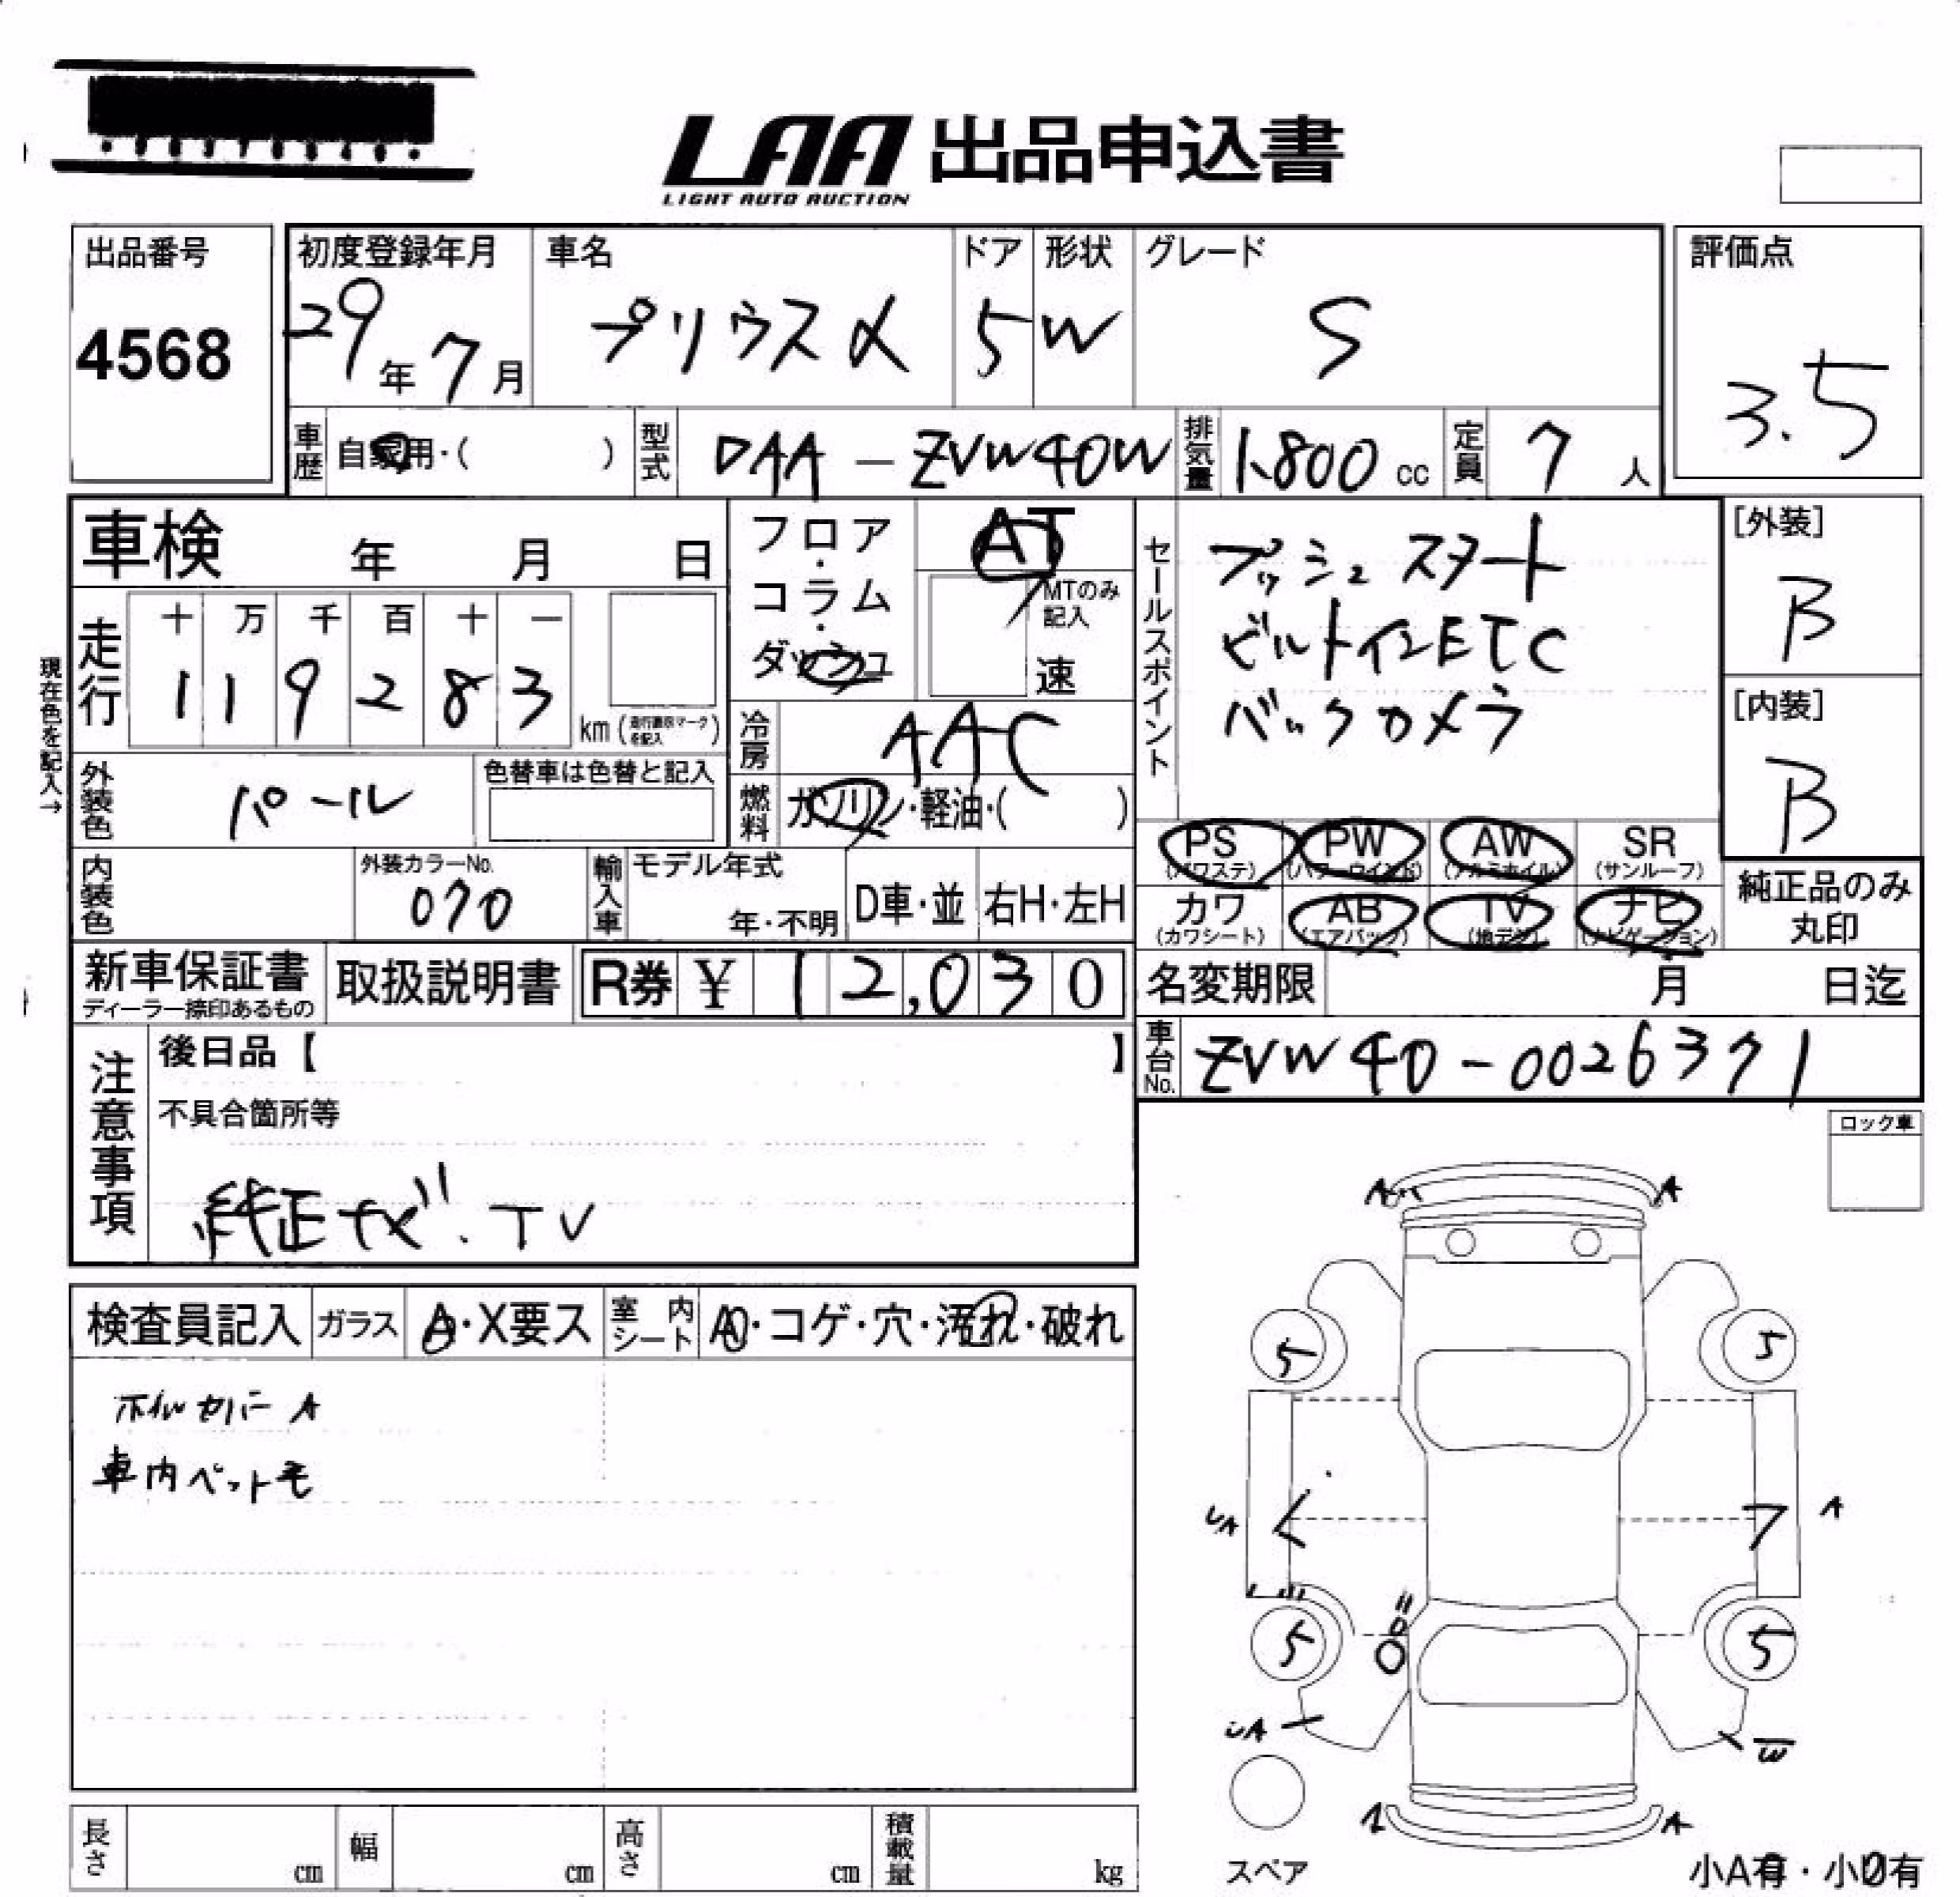 LAA 出品申込書
LIGHT AUTO AUCTION
出品番号
4568
初度登録年月
29年7月
車名
プリウスα
ドア
5
形状
W
グレード
S
評価点
3.5
車歴
自家用・( )
型式
DAA-ZVW40W
排気量
1.800 cc
定員
7人
車検 年 月 日
フロア・コラム・ダッシュ
AT
MTのみ記入
速
現在色を記入→
走行
十 万 千 百 十 一
1 1 9 2 8 3
km (走行メーター交換マークを記入)
冷房
AAC
外装色
パール
色替車は色替と記入
燃料
ガソリン・軽油・( )
内装色
外装カラーNo.
070
輸入車
モデル年式
年・不明
D車・並
右H・左H
セールスポイント
プッシュスタート
ビルトインETC
バックカメラ
[外装]
B
[内装]
B
PS (パワステ)
PW (パワーウインド)
AW (アルミホイル)
SR (サンルーフ)
カワ (カワシート)
AB (エアバック)
TV (地デジ)
ナビ (ナビゲーション)
純正品のみ
丸印
新車保証書
ディーラー捺印あるもの
取扱説明書
R券 ¥ 12,030
名変期限 月 日迄
車台No.
ZVW40-0026371
注意事項
後日品【 】
不具合箇所等
純正ナビ.TV
ロック車
検査員記入
ガラス
A・X要ス
室内シート
A・コゲ・穴・汚れ・破れ
ホイルカバーA
車内ペット毛
A
A
5
5
A
A
5
5
A
W
A
スペア
小A有・小U有
長さ cm
幅 cm
高さ cm
積載量 kg